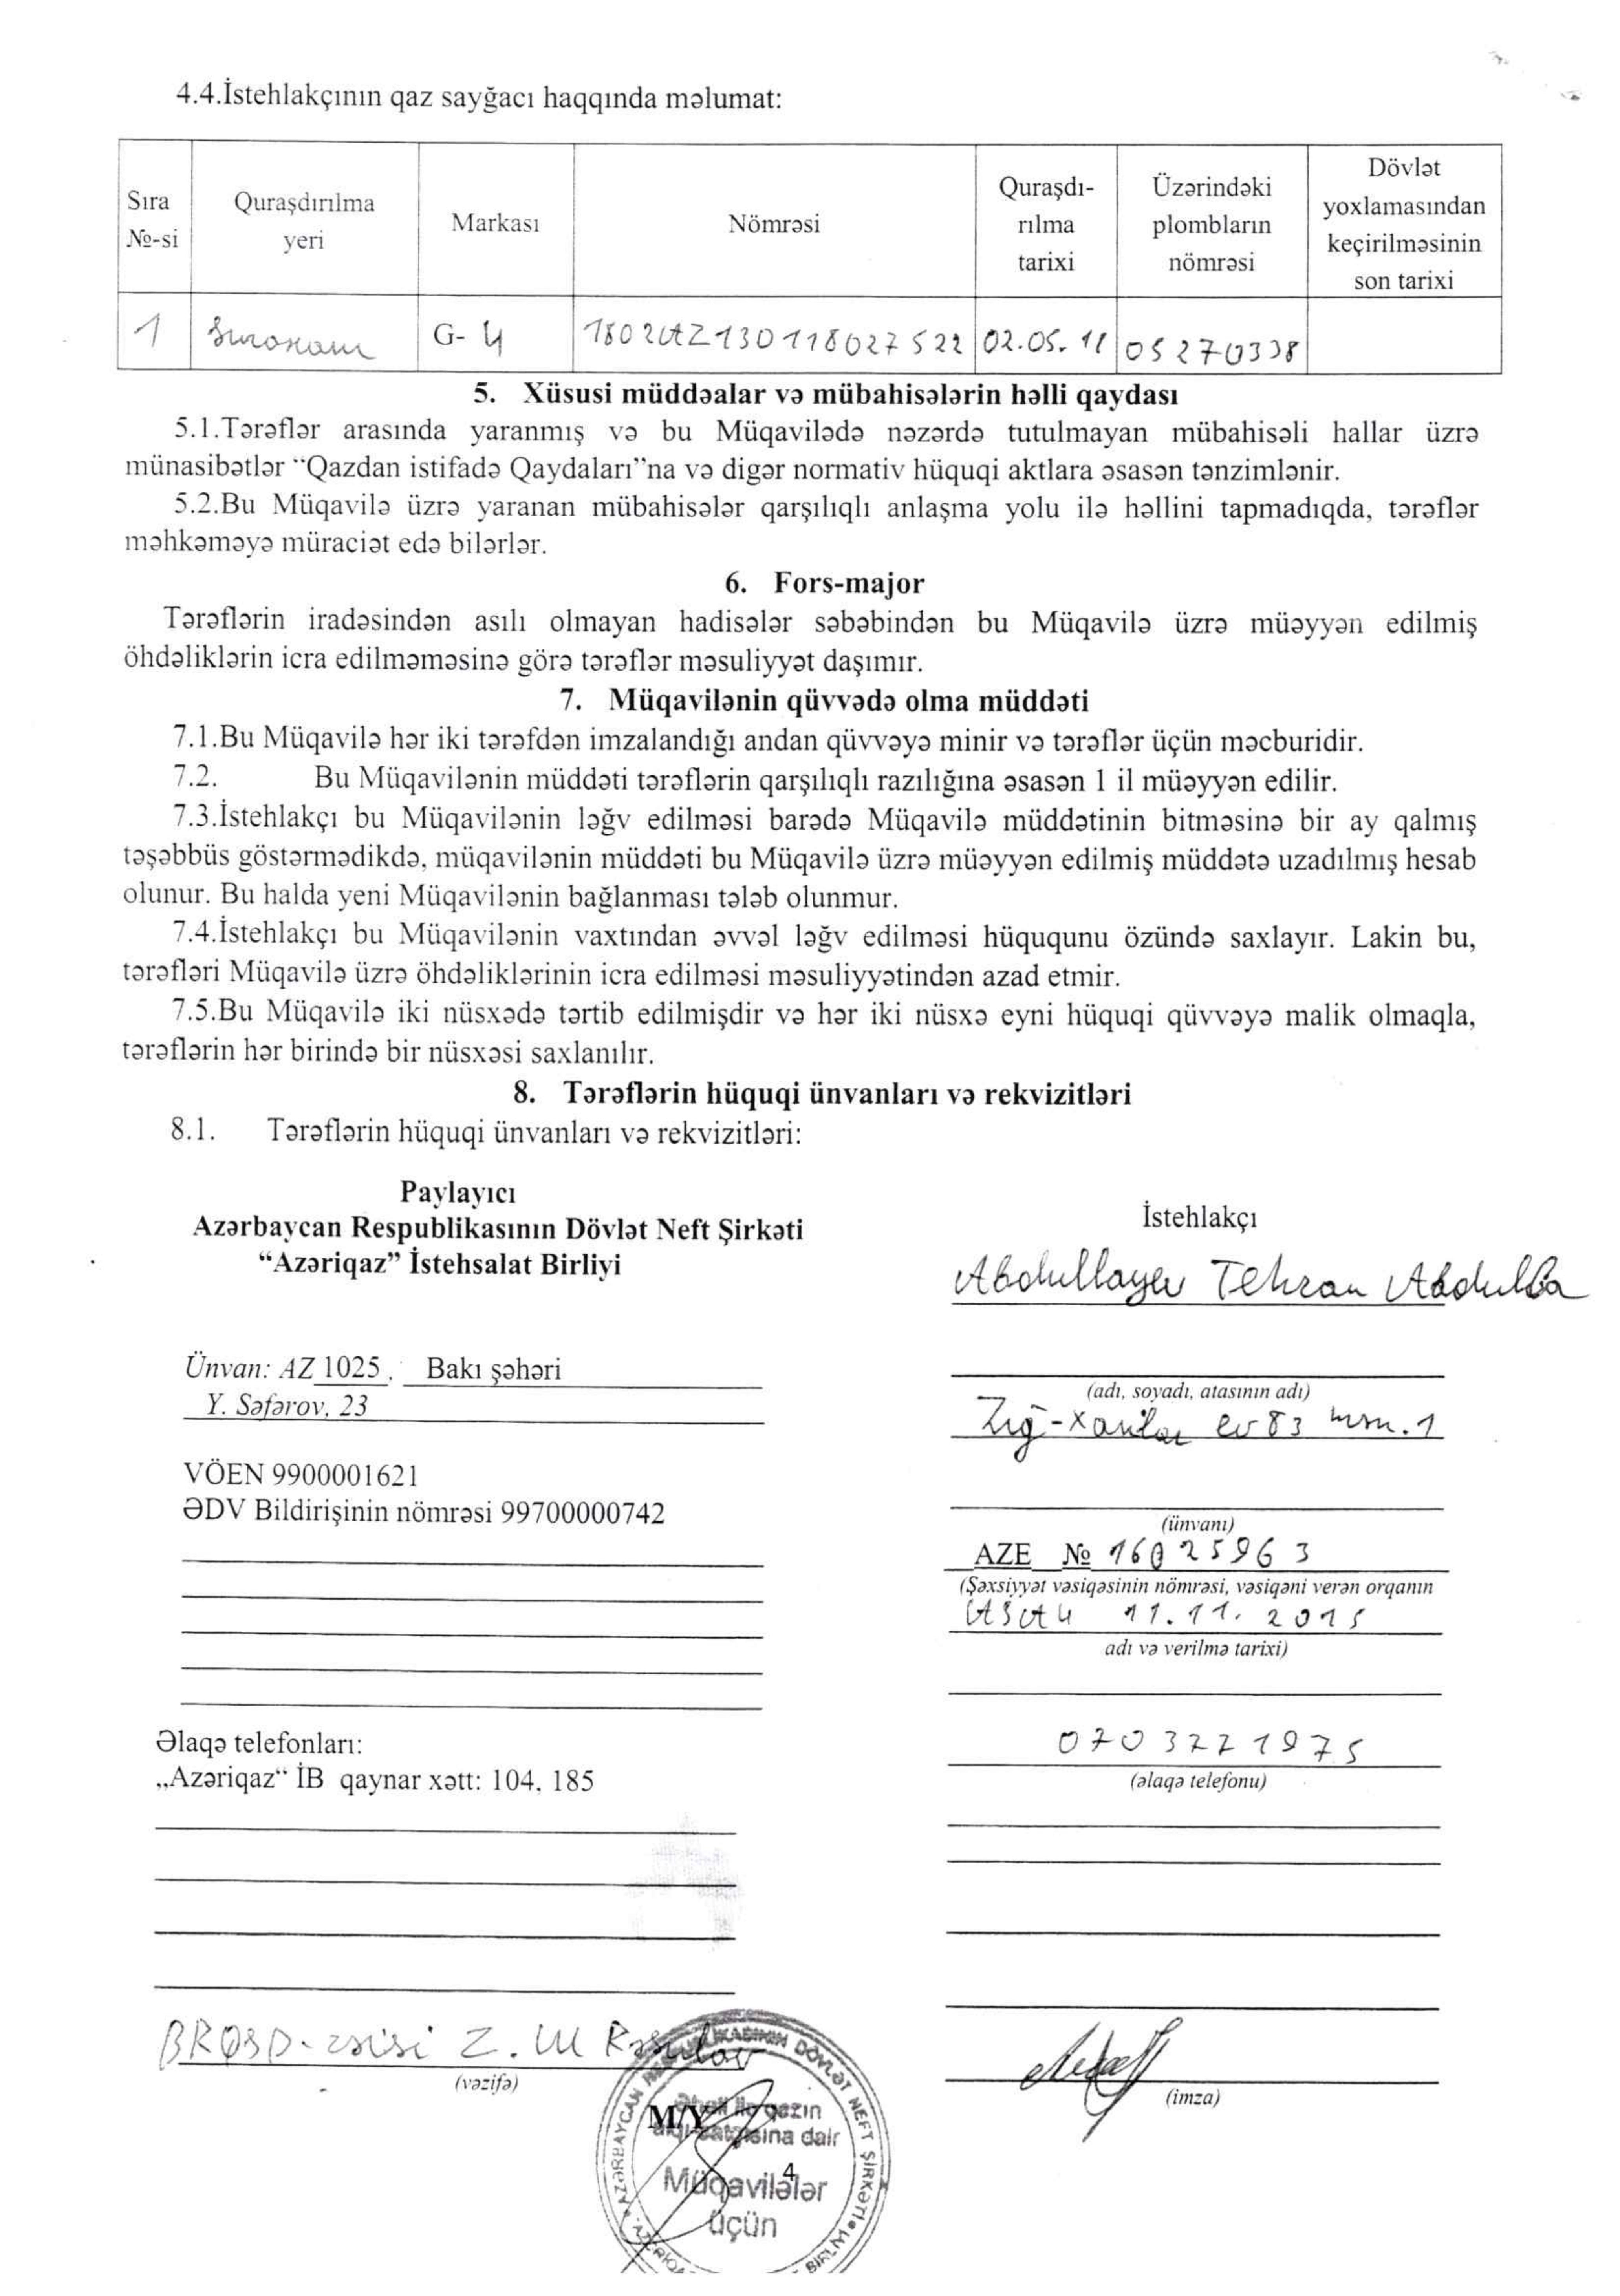 4.4.İstehlakçının qaz sayğacı haqqında məlumat:
Sıra №-si
Quraşdırılma yeri
Markası
Nömrəsi
Quraşdı-rılma tarixi
Üzərindəki plombların nömrəsi
Dövlət yoxlamasından keçirilməsinin son tarixi
1 Suraxanı G- 4 1802AZ130118027522 02.05.18 05270338
5. Xüsusi müddəalar və mübahisələrin həlli qaydası
5.1.Tərəflər arasında yaranmış və bu Müqavilədə nəzərdə tutulmayan mübahisəli hallar üzrə
münasibətlər “Qazdan istifadə Qaydaları”na və digər normativ hüquqi aktlara əsasən tənzimlənir.
5.2.Bu Müqavilə üzrə yaranan mübahisələr qarşılıqlı anlaşma yolu ilə həllini tapmadıqda, tərəflər
məhkəməyə müraciət edə bilərlər.
6. Fors-major
Tərəflərin iradəsindən asılı olmayan hadisələr səbəbindən bu Müqavilə üzrə müəyyən edilmiş
öhdəliklərin icra edilməməsinə görə tərəflər məsuliyyət daşımır.
7. Müqavilənin qüvvədə olma müddəti
7.1.Bu Müqavilə hər iki tərəfdən imzalandığı andan qüvvəyə minir və tərəflər üçün məcburidir.
7.2. Bu Müqavilənin müddəti tərəflərin qarşılıqlı razılığına əsasən 1 il müəyyən edilir.
7.3.İstehlakçı bu Müqavilənin ləğv edilməsi barədə Müqavilə müddətinin bitməsinə bir ay qalmış
təşəbbüs göstərmədikdə, müqavilənin müddəti bu Müqavilə üzrə müəyyən edilmiş müddətə uzadılmış hesab
olunur. Bu halda yeni Müqavilənin bağlanması tələb olunmur.
7.4.İstehlakçı bu Müqavilənin vaxtından əvvəl ləğv edilməsi hüququnu özündə saxlayır. Lakin bu,
tərəfləri Müqavilə üzrə öhdəliklərinin icra edilməsi məsuliyyətindən azad etmir.
7.5.Bu Müqavilə iki nüsxədə tərtib edilmişdir və hər iki nüsxə eyni hüquqi qüvvəyə malik olmaqla,
tərəflərin hər birində bir nüsxəsi saxlanılır.
8. Tərəflərin hüquqi ünvanları və rekvizitləri
8.1. Tərəflərin hüquqi ünvanları və rekvizitləri:
Paylayıcı
Azərbaycan Respublikasının Dövlət Neft Şirkəti
“Azəriqaz” İstehsalat Birliyi
Ünvan: AZ 1025, Bakı şəhəri
Y. Səfərov, 23
VÖEN 9900001621
ƏDV Bildirişinin nömrəsi 99700000742
Əlaqə telefonları:
„Azəriqaz“ İB qaynar xətt: 104, 185
Z. M Rəsulov
(vəzifə)
M/Y
İstehlakçı
Abdullayev Tehran Abdulla
(adı, soyadı, atasının adı)
Zığ-Xanlar ev 83 mən. 1
(ünvanı)
AZE № 16025963
(Şəxsiyyət vəsiqəsinin nömrəsi, vəsiqəni verən orqanın
11.11.2015
adı və verilmə tarixi)
0703271975
(əlaqə telefonu)
(imza)
AZƏRBAYCAN RESPUBLİKASININ DÖVLƏT NEFT ŞİRKƏTİ
Əhali ilə qazın
alqı-satqısına dair
Müqavilələr
üçün
4